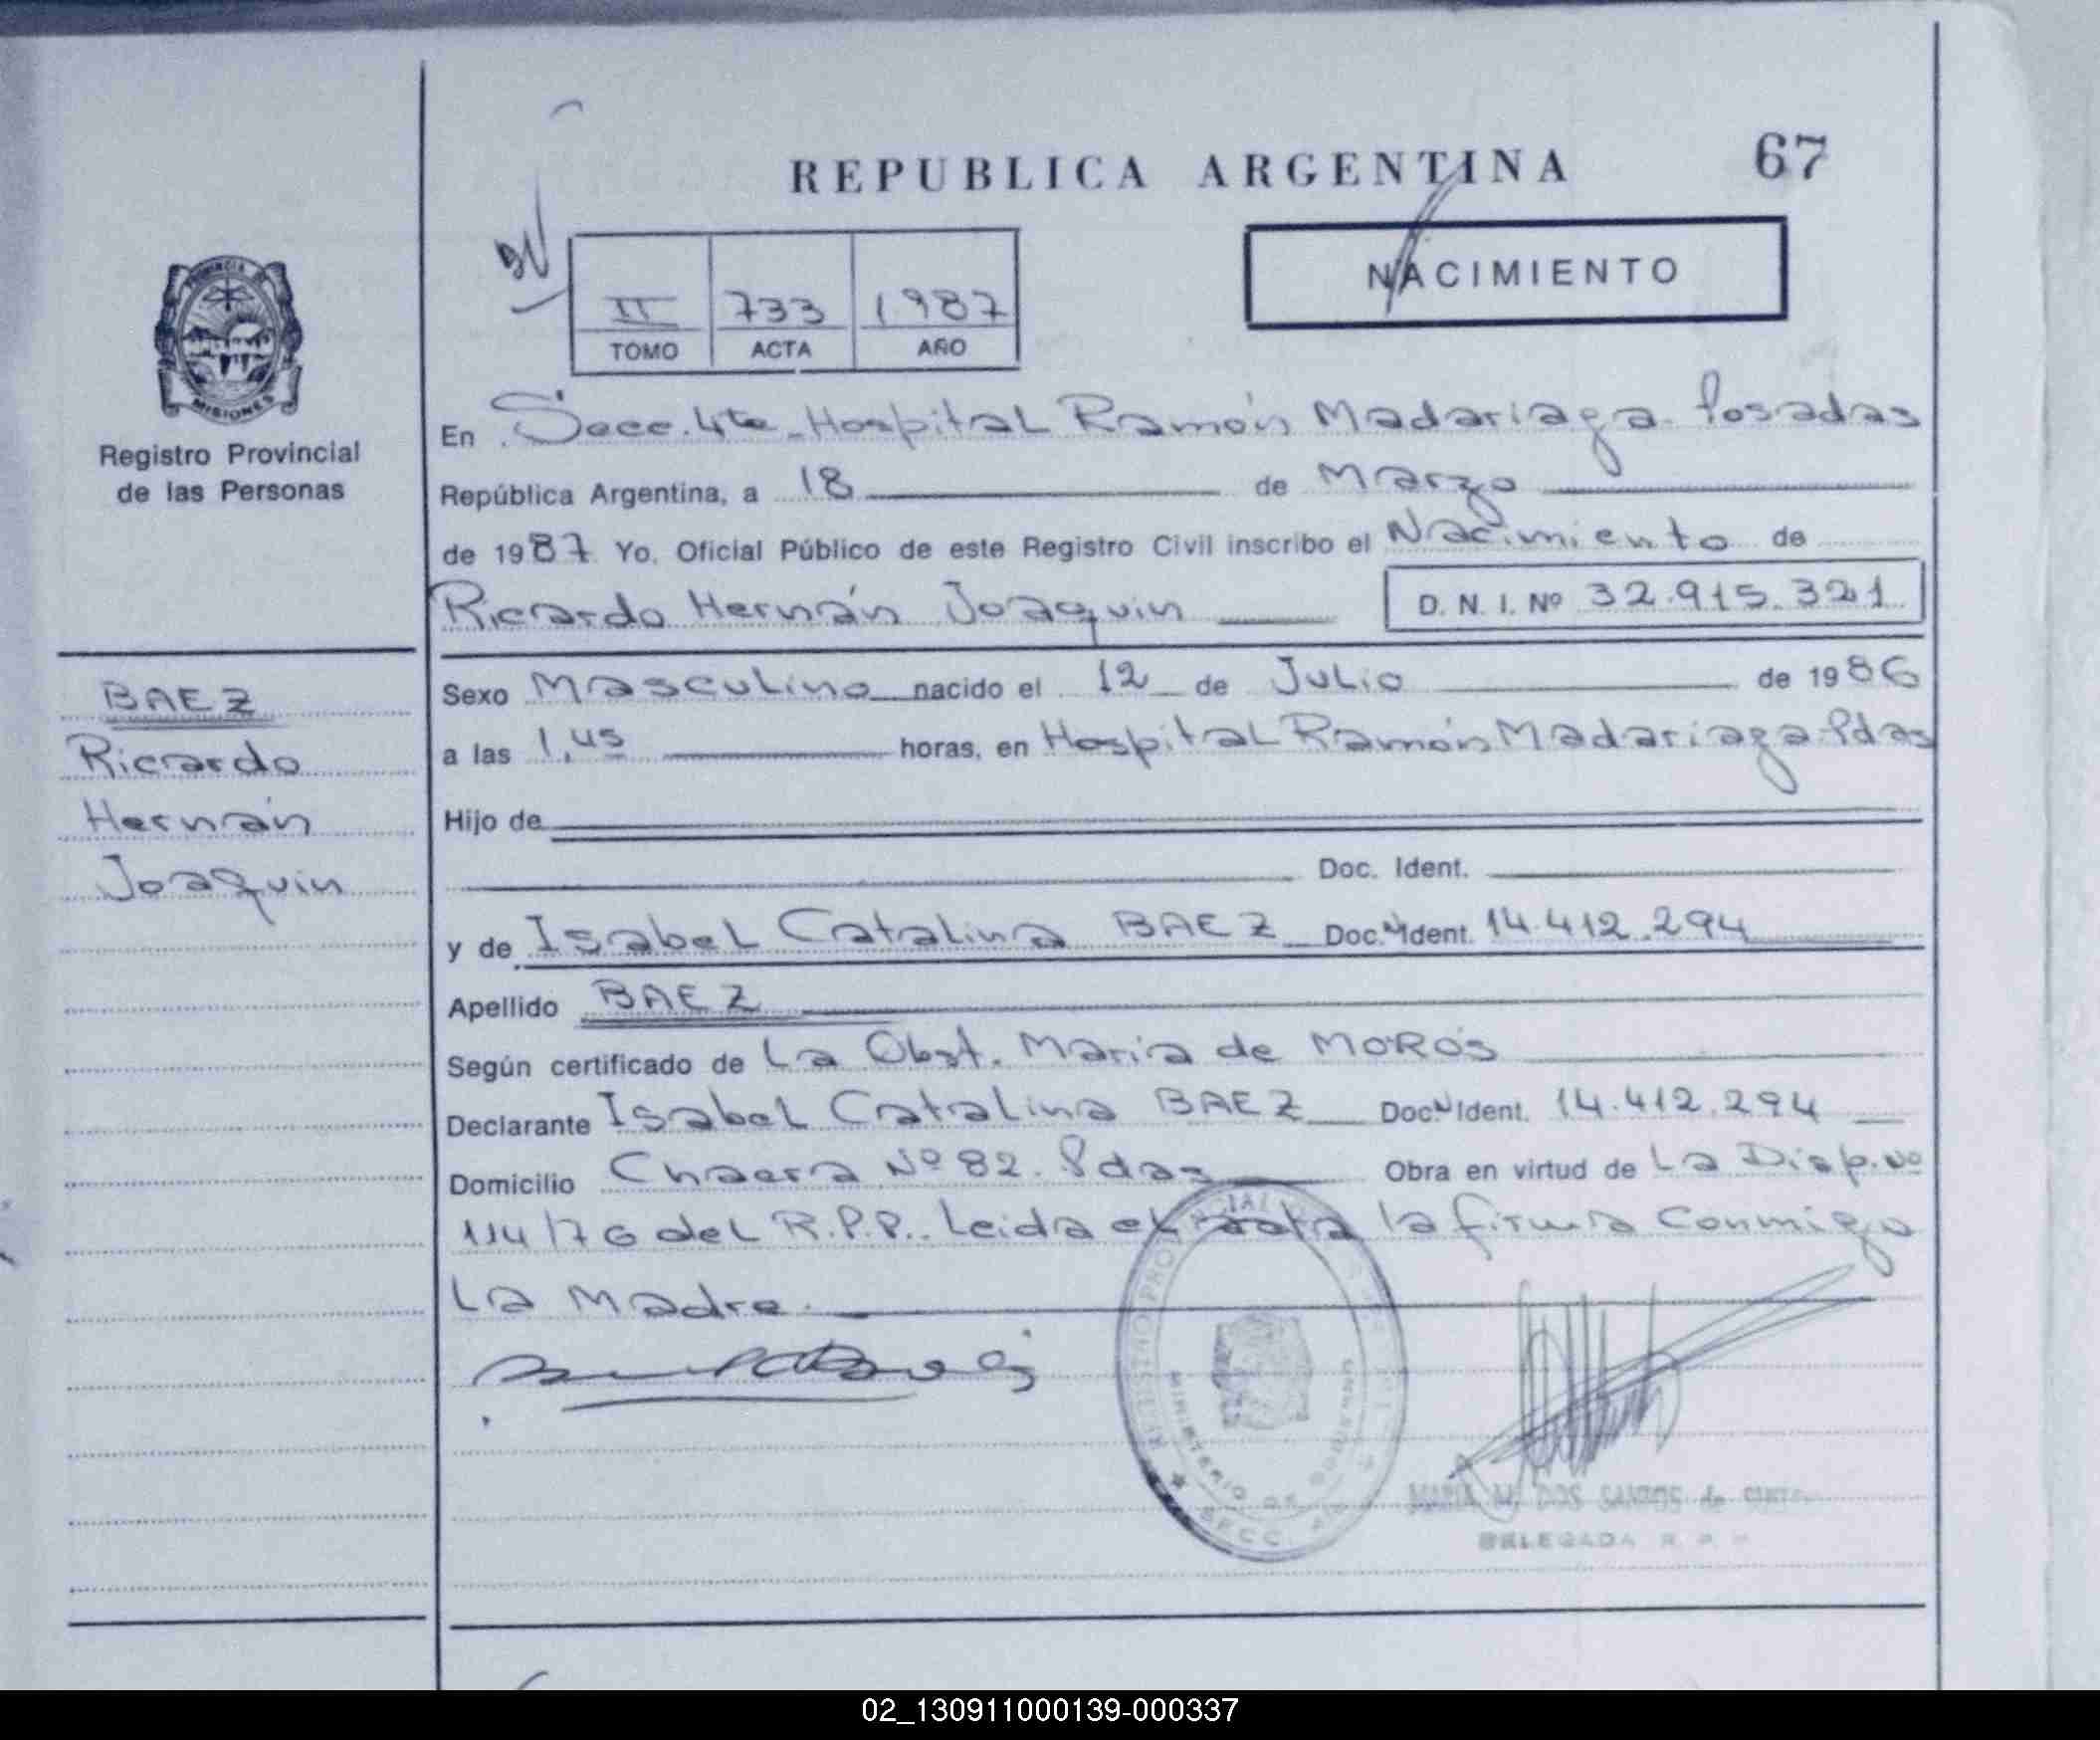 REPUBLICA ARGENTINA 67
II 733 1987
TOMO ACTA AÑO
NACIMIENTO
PROVINCIA DE
MISIONES
Registro Provincial
de las Personas
En Secc. 4ta - Hospital Ramón Madariaga Posadas
República Argentina, a 18 de Marzo
de 1987 Yo, Oficial Público de este Registro Civil inscribo el Nacimiento de
Ricardo Hernán Joaquin D. N. I. Nº 32.915.321
BAEZ
Ricardo
Hernán
Joaquin
Sexo Masculino nacido el 12 de Julio de 1986
a las 1,45 horas, en Hospital Ramón Madariaga-Pdas
Hijo de
Doc. Ident.
y de Isabel Catalina BAEZ Doc. Ident. 14.412.294
Apellido BAEZ
Según certificado de La Obst. María de MOROS
Declarante Isabel Catalina BAEZ Doc. Ident. 14.412.294
Domicilio Chacra Nº 82. Pdas Obra en virtud de La Disp. Nº
114/76 del R.P.P.. Leida el acta la firma conmigo
La Madre.
MINISTERIO DE GOBIERNO
SECC.
MARIA M. DOS SANTOS de
DELEGADA R. P.
02_130911000139-000337